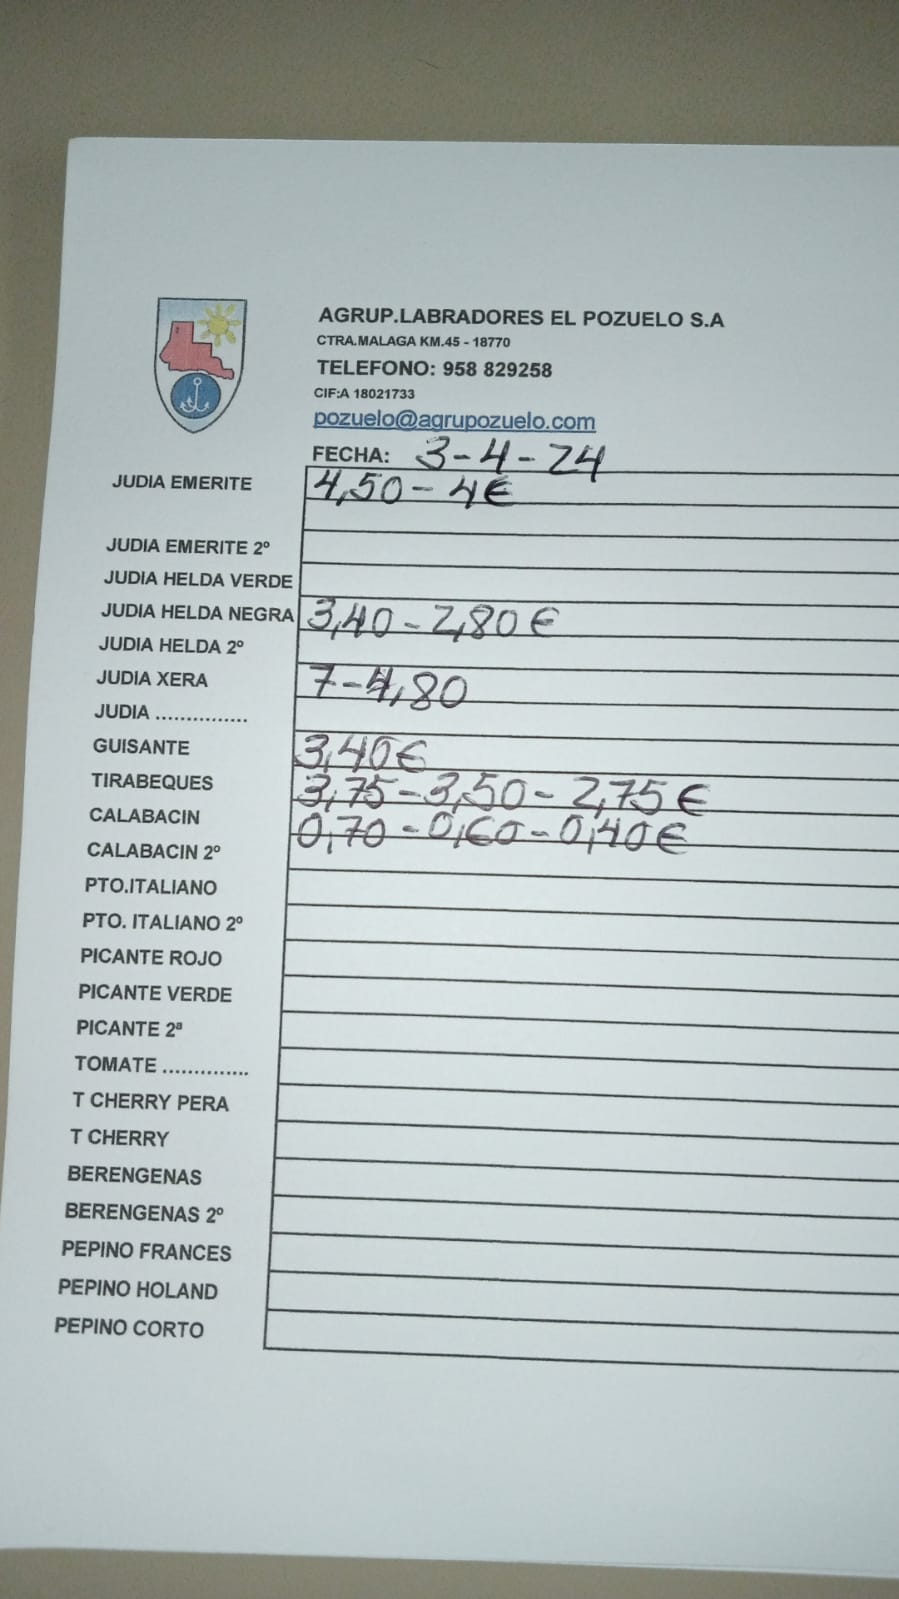 AGRUP.LABRADORES EL POZUELO S.A
CTRA.MALAGA KM.45 - 18770
TELEFONO: 958 829258
CIF:A 18021733
pozuelo@agrupozuelo.com
FECHA: 3-4-24
JUDIA EMERITE 4,50-4€
JUDIA EMERITE 2º
JUDIA HELDA VERDE
JUDIA HELDA NEGRA 3,40-2,80€
JUDIA HELDA 2º
JUDIA XERA 7-4,80
JUDIA ...............
GUISANTE 3,40€
TIRABEQUES 3,75-3,50-2,75€
CALABACIN 0,70-0,60-0,40€
CALABACIN 2º
PTO.ITALIANO
PTO. ITALIANO 2º
PICANTE ROJO
PICANTE VERDE
PICANTE 2ª
TOMATE ..............
T CHERRY PERA
T CHERRY
BERENGENAS
BERENGENAS 2º
PEPINO FRANCES
PEPINO HOLAND
PEPINO CORTO